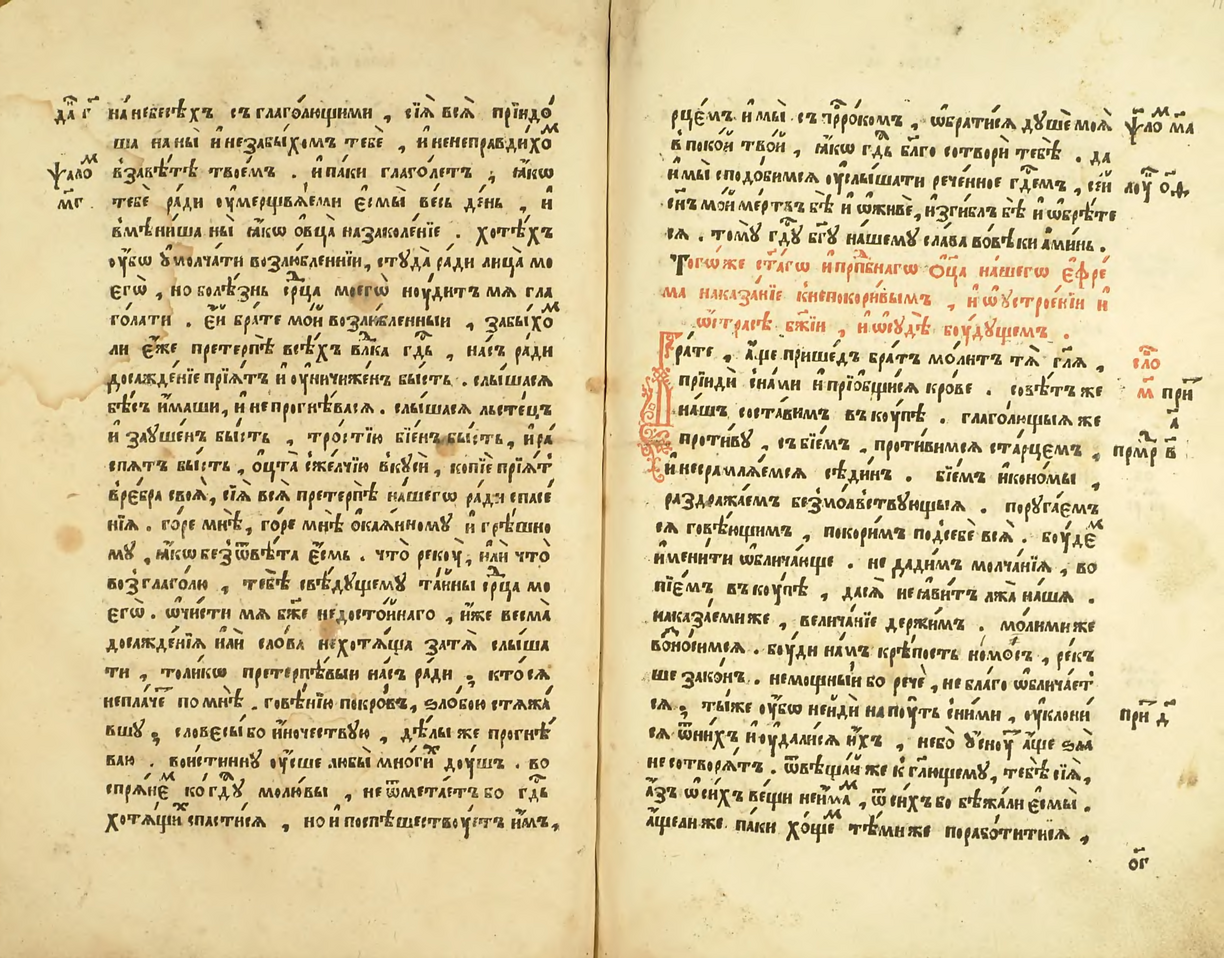 да҃ г҃
на́небесѣхъ съ глаго́лющими , сїѧ̀ всѧ̀ прїидо́
ша на ны̀ и҆ незабы́хомъ тебѐ , и҆ ненеправди́хо
ѱало м҃г .
в̾завѣ́тѣ твое́мъ . и҆ па́ки глаго́летъ , ꙗ҆́кѡ
тебѐ ра́ди оу҆мерщвлѧ́еми є҆смы̀ ве́сь де́нь , и҆
вмѣни́ша ны̀ ꙗ҆́кѡ о҆́вца на заколе́нїе . хотѣ́хъ
оу҆́бѡ ᲂумолча́ти возлю́бленнїи , студа̀ ра́ди лица̀ мо
є҆гѡ̀ , но болѣ́знь се́рца моегѡ̀ ноу́дитъ мѧ̀ гла
го́лати . є҆́й бра́те мо́й возлю́бленныи , забы́хо
ли є҆́же претерпѣ̀ всѣ́хъ вл҃ка гд҃ь , на́съ ра́ди
досажде́нїе прїѧ́тъ и҆ оу҆ничиже́нъ бы́сть . слы́шасѧ
бѣ́съ и҆́маши , и҆ не прогнѣ́васѧ . слы́шасѧ льсте́цъ
и҆ заꙋше́нъ бы́сть , тро́стїю бїе́нъ бы́сть , и҆ ра
спѧ́тъ бы́сть , о҆́цта сже́лчїю вкꙋсѝ , ко́пїе прїѧ́т
в̾ре́бра своѧ̀ , сїѧ̀ всѧ̀ претерпѣ̀ на́шегѡ ра́ди спасе́
нїѧ . го́ре мнѣ̀ , го́ре мнѣ̀ ѻ҆каѧ́нномꙋ и҆ грѣ́шно
мꙋ , ꙗ҆́кѡ без̾ѿвѣ́та є҆́смь . что̀ рекоу̀ , и҆лѝ что̀
возглаго́лю , тебѣ̀ свѣ́дꙋщемꙋ та́йны се́рца мо
егѡ̀ . ѡ҆чи́сти мѧ̀ бж҃е недосто́йнаго , и҆́же весма̀
досажде́нїѧ и҆лѝ сло́ва нехотѧ́ща затѧ̀ слы́ша
ти , толи́кѡ претерпѣ́выи на́съ ра́ди , кто́ сѧ
неплаче́т по мнѣ̀ . говѣ́нїю покро́въ , ѕло́бою стѧжа́
вшꙋ ; словесы́ бо и҆́ночествꙋю , дѣ́лы же прогнѣ́
ваю . вои́стиннꙋ оу҆́сше любы̀ мно́гих доу́шъ . во
спрѧне́м ко гд҃ꙋ моли́вы , не ѿмета́етъ бо гд҃ь
хотѧ́щих спасти́сѧ , но и҆ поспѣ́шествоуетъ и҆̀мъ ,
рце́мъ и҆ мы̀ съ прⷪ҇ро́комъ , ѡ҆брати́сѧ дꙋшѐ моѧ̀
ѱало м҃а
в̾ поко́й тво́й , ꙗ҆́кѡ гд҃ь бл҃го сотворѝ тебѣ̀ . да
и҆ мы̀ сподо́бимсѧ оу҆слы́шати рече́нное гд҃емъ , се́й
сн҃ъ мо́й ме́ртвъ бѣ̀ и҆ ѡ҆живѐ , и҆зги́блъ бѣ̀ и҆ ѡ҆брѣ́те
сѧ . томꙋ̀ гд҃ꙋ бг҃ꙋ на́шемꙋ сла́ва во вѣ́ки а҆ми́нь .
Того́ же ст҃а́гѡ и҆ прп҃бнагѡ о҆ц҃а на́шегѡ є҆фре́
ма наказа́нїе к̾непокори́вымъ , и҆ ѡ҆ ᲂустрое́нїи и҆
ѡ҆ стра́сѣ бж҃їи , и҆ ѡ҆ сꙋдѣ̀ боу́дꙋщемъ .
сло м҃
Бра́те , а҆́ще прише́дъ бра́тъ мо́литъ тѧ̀ гл҃ѧ ,
при а҃
прїидѝ сна́ми и҆ прїѡбщи́сѧ кро́ве . совѣ́тъ же
на́шъ соста́вимъ въ коу́пѣ . глаго́лющыѧ же
проти́вꙋ , съ бїе́мъ , проти́вимсѧ ста́рцемъ ,
прмр в҃
и҆ несрамлѧ́емсѧ сѣди́нъ . бїе́мъ и҆кономы ,
раздража́емъ безмо́лвствꙋющыѧ . порꙋга́емъ
сѧ говѣ́ющимъ , покори́мъ подсебѐ всѧ̀ . боу́дем
и҆мени́ти ѡ҆блича́юще . не дади́мъ молча́нїѧ , во
пїе́мъ въ коу́пѣ , да сѧ не ꙗ҆ви́тъ лжа̀ на́ша .
наказа́еми же , велича́нїе держи́мъ . моли́ми же
возно́симсѧ . боу́ди на́мъ крѣ́пость но́мосъ , ре́къ
ше зако́нъ . немощны́и бо речѐ , не бла́го ѡ҆блича́ет
при д҃
сѧ ; ты́ же оу҆́бѡ неидѝ на поу́ть сни́ми , оу҆клони́
сѧ ѿни́хъ и҆ оу҆дали́сѧ и҆́хъ , небо̀ ᲂу҆сноу́т а҆́ще ѕла̀
не сотворѧ́тъ . ѿвѣща́й же к̾ гл҃ющемꙋ , тебѣ̀ сїѧ̀ ,
а҆́зъ ѡ҆ си́хъ ве́щи неи́мам , ѿ си́хъ бо бѣжа́ли є҆смы̀ .
а҆́ще ли же па́ки хо́щем тѣ́ми же порабо́титисѧ ,
о҃г